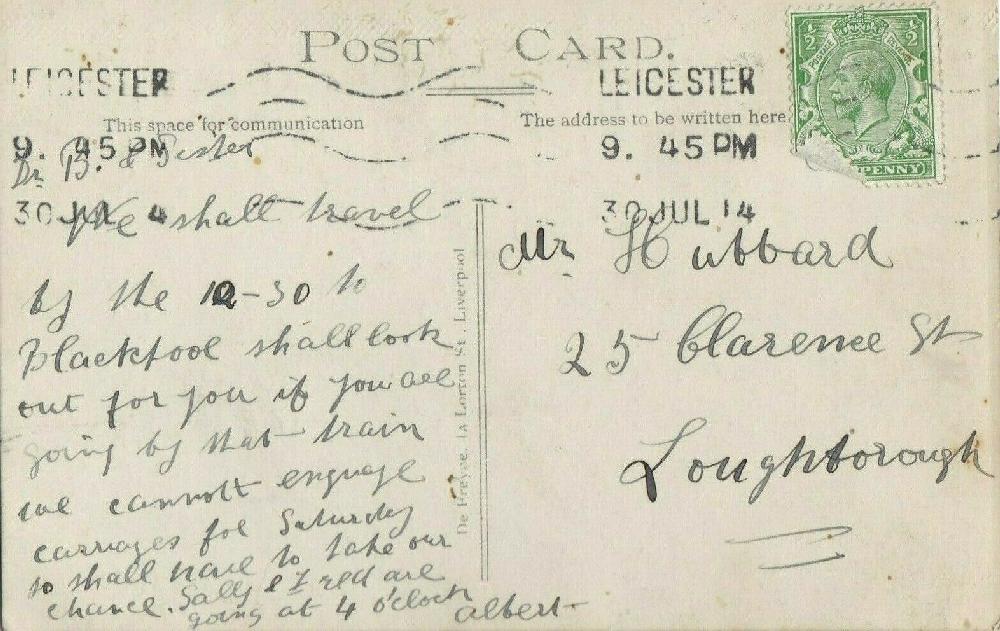 POST CARD.
LEICESTER
9. 45 PM
30 JUL 14
LEICESTER
9. 45 PM
30 JUL 14
½ ½
PENNY
This space for communication
The address to be written here
Dr B. & Sister
We shall travel
by the 12-30 to
Blackpool shall look
out for you if you are
going by that train
we cannott enguage
carriages for Saturday
so shall have to take our
chance. Sally & I are
going at 4 o'clock
Albert
De Freyne, 1a Lorton St. Liverpool
Mr Hubbard
25 Clarence St
Loughborough